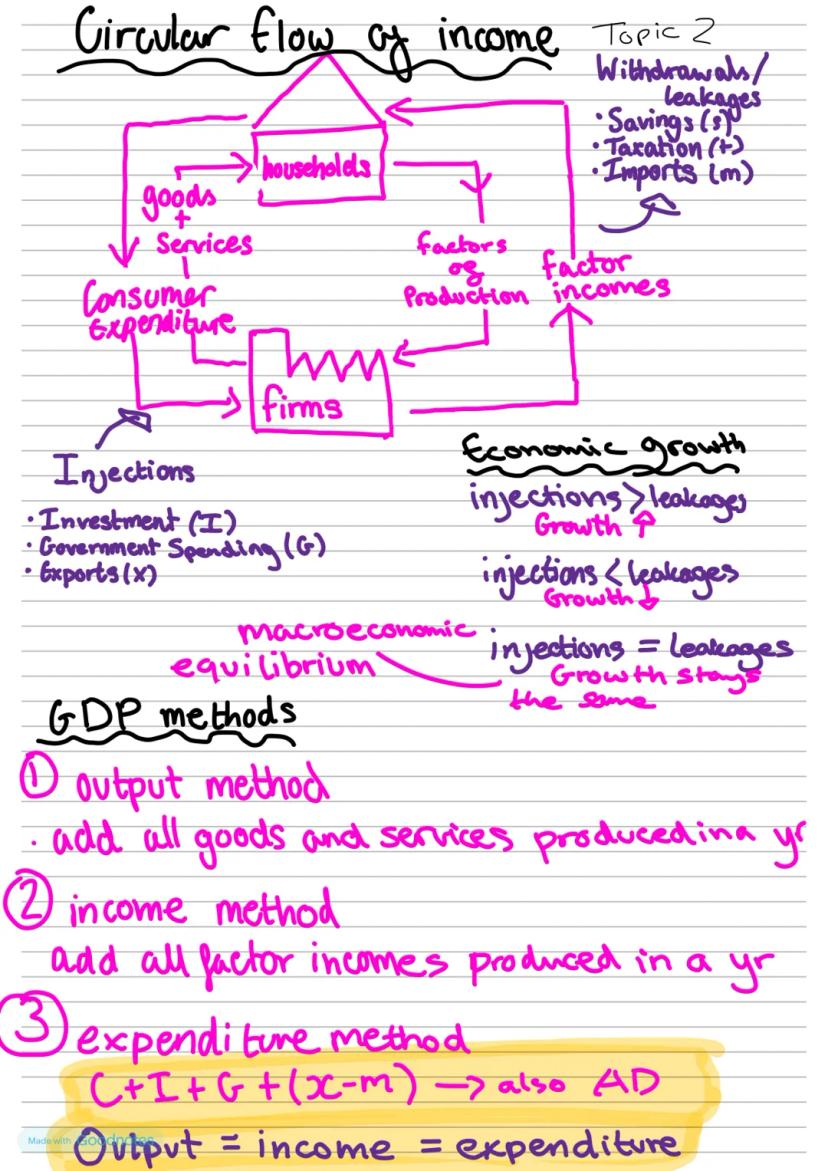 Circular flow of income
Topic 2
Withdrawals/
leakages
· Savings (s)
· Taxation (t)
· Imports (m)
households
goods
+
Services
Consumer
Expenditure
factors
of
Production
factor
incomes
firms
Injections
· Investment (I)
· Government Spending (G)
· Exports (x)
Economic growth
injections > leakages
Growth ↑
injections < leakages
Growth ↓
macroeconomic
equilibrium
injections = leakages
Growth stays
the same
GDP methods
① output method
· add all goods and services produced in a yr
② income method
add all factor incomes produced in a yr
③ expenditure method
C+I+G+(x-m) → also AD
Output = income = expenditure
Made with Goodnotes